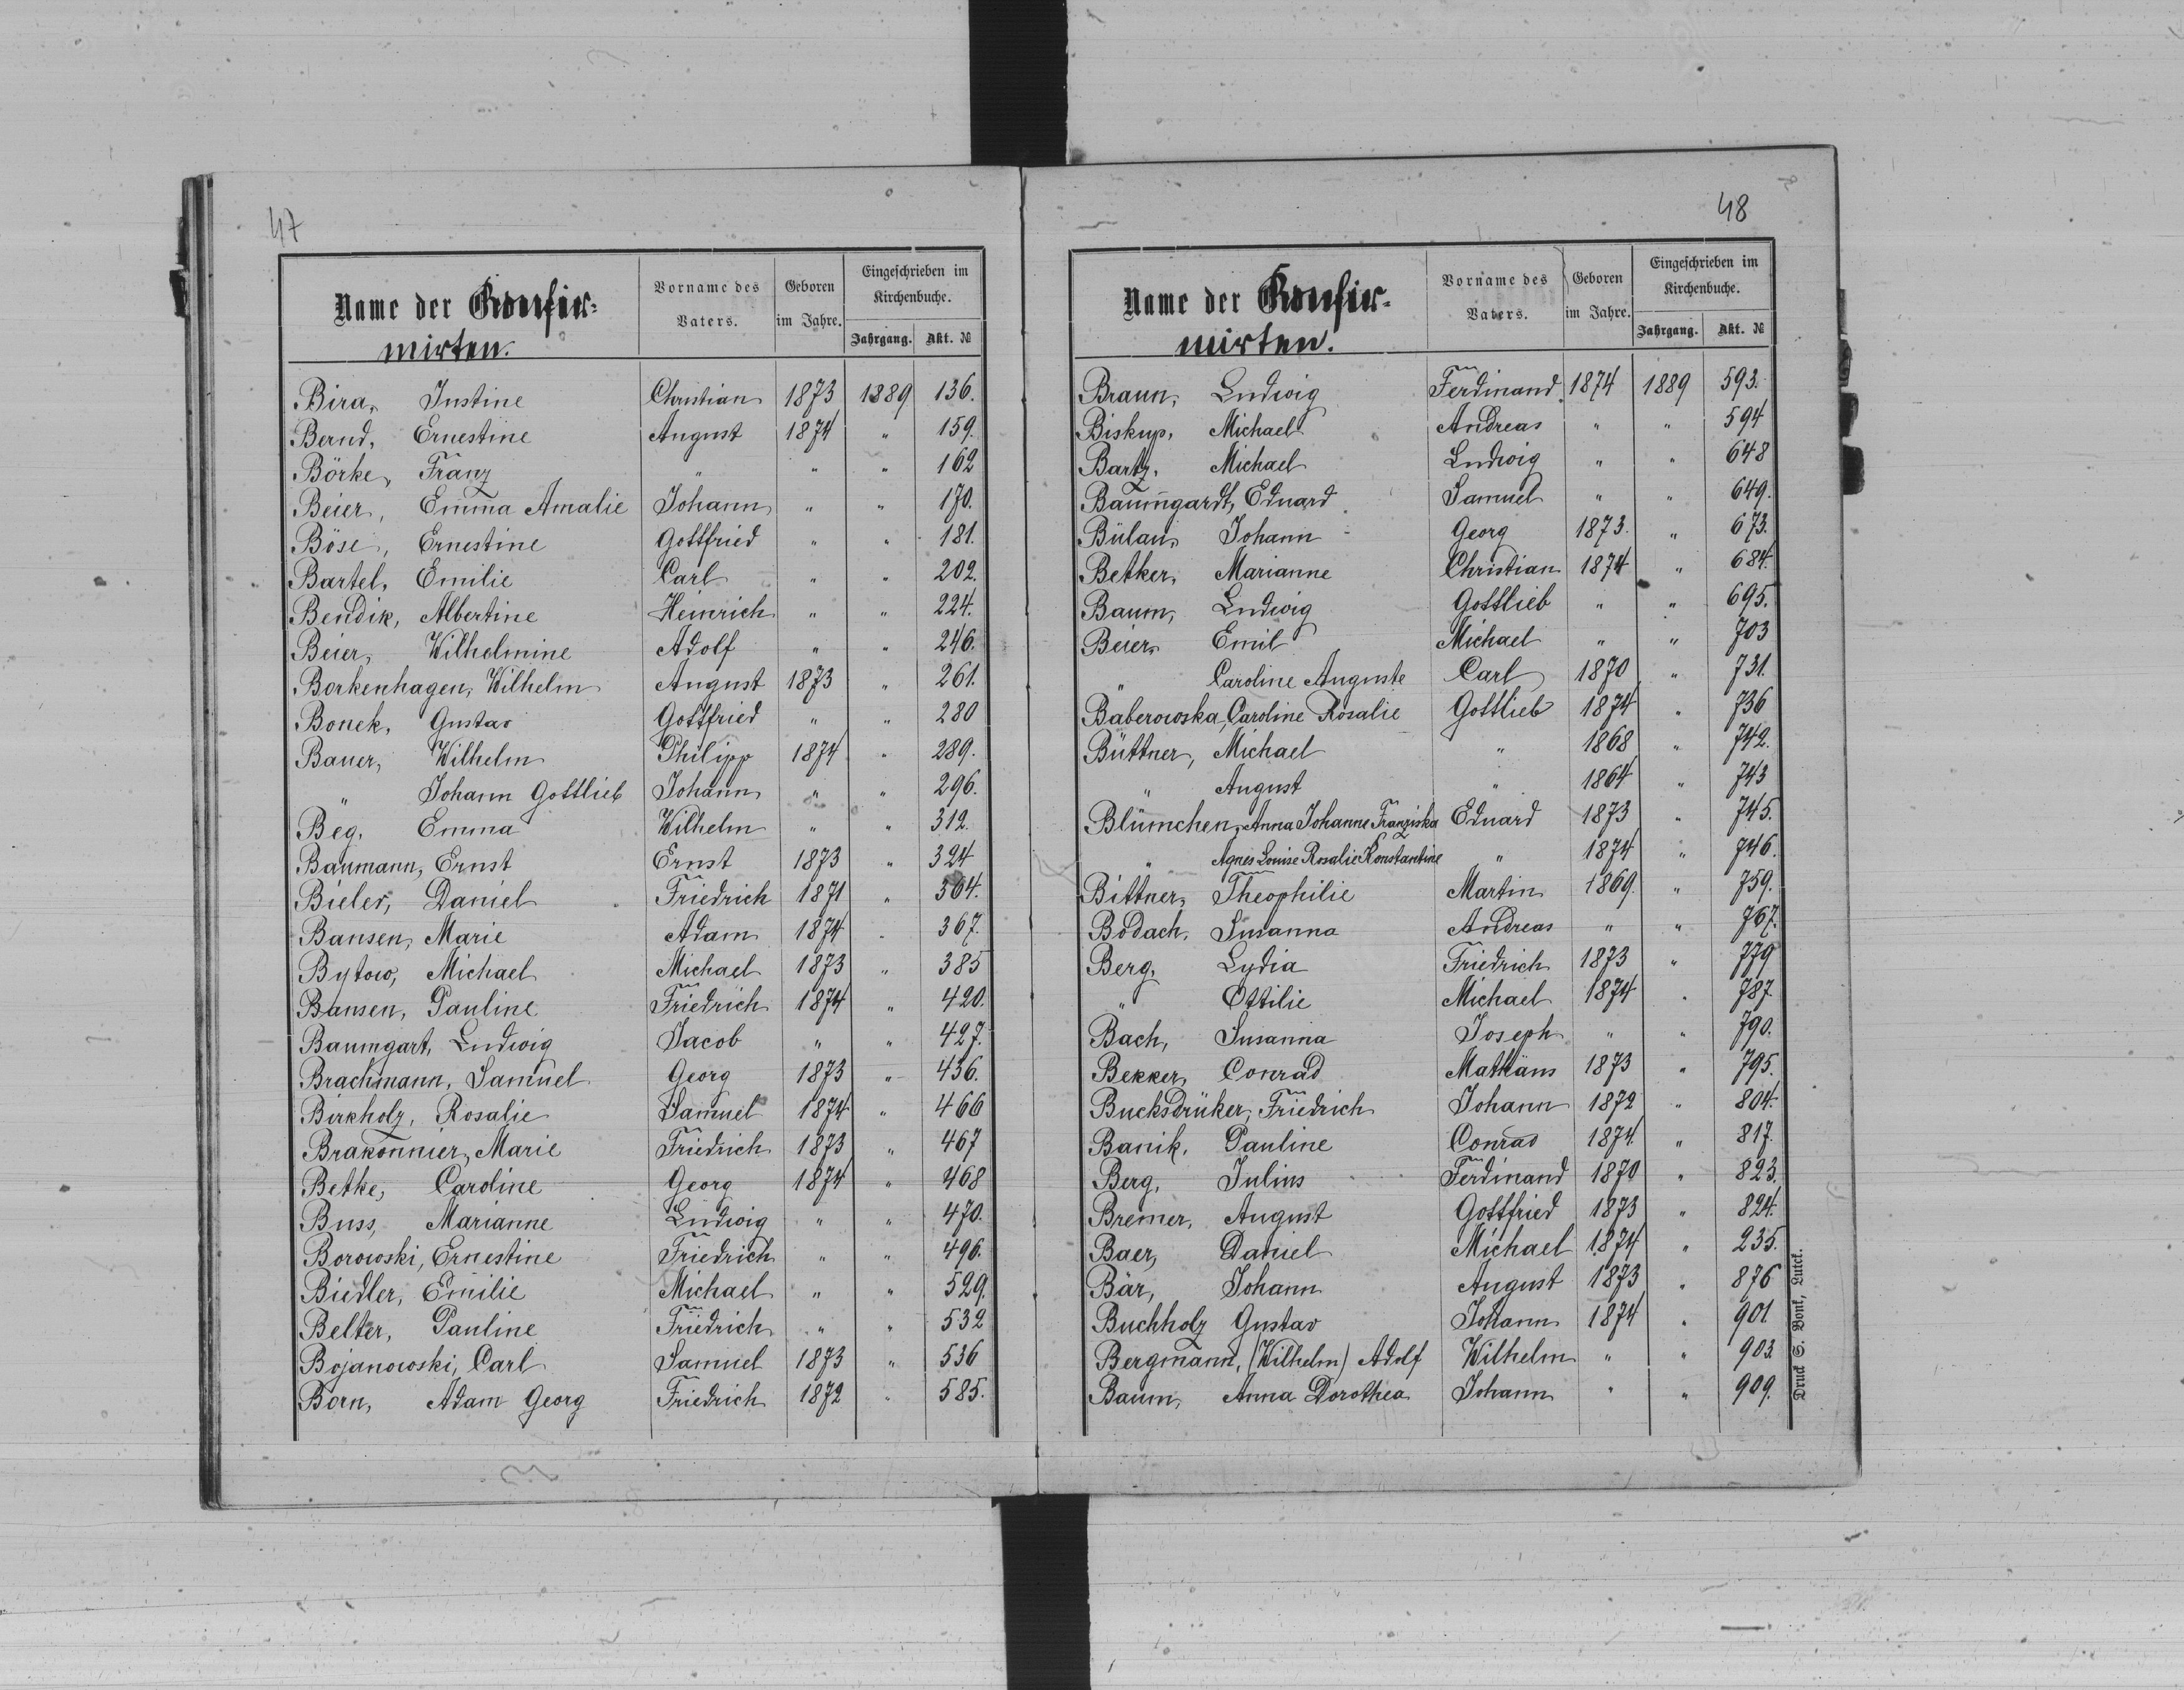 47
Name der Konfir-
mirten.
Vorname des
Vaters.
Geboren
im Jahre.
Eingeschrieben im
Kirchenbuche.
Jahrgang. Akt. №
Bira, Justine Christian 1873 1889 136.
Bernd, Ernestine August 1874 " 159.
Börke, Franz " " " 162
Beier, Emma Amalie Johann " " 170.
Böse, Ernestine Gottfried " " 181.
Bartel, Emilie Carl " " 202.
Bendik, Albertine Heinrich " " 224.
Beier, Wilhelmine Adolf " " 246.
Borkenhagen, Wilhelm August 1873 " 261.
Bonek, Gustav Gottfried " " 280
Bauer, Wilhelm Philipp 1874 " 289.
" Johann Gottlieb Johann " " 296.
Beg, Emma Wilhelm " " 312.
Baumann, Ernst Ernst 1873 " 324
Bieler, Daniel Friedrich 1871 " 364.
Bansen, Marie Adam 1874 " 367.
Bytow, Michael Michael 1873 " 385
Bansen, Pauline Friedrich 1874 " 420.
Baumgart, Ludwig Jacob " " 427.
Brachmann, Samuel Georg 1873 " 436.
Birkholz, Rosalie Samuel 1874 " 466
Brakonnier, Marie Friedrich 1873 " 467
Betke, Caroline Georg 1874 " 468
Buss, Marianne Ludwig " " 470.
Borowski, Ernestine Friedrich " " 496.
Biedler, Emilie Michael " " 529.
Belter, Pauline Friedrich " " 532
Bojanowski, Carl Samuel 1873 " 536
Born, Adam Georg Friedrich 1872 " 585.
48
Name der Konfir-
mirten.
Vorname des
Vaters.
Geboren
im Jahre.
Eingeschrieben im
Kirchenbuche.
Jahrgang. Akt. №
Braun, Ludwig Ferdinand 1874 1889 593.
Biskup, Michael Andreas " " 594
Bartz, Michael Ludwig " " 648
Baumgardt, Eduard Samuel " " 649.
Bülau, Johann Georg 1873. " 673.
Betker, Marianne Christian 1874 " 684.
Baum, Ludwig Gottlieb " " 695.
Beier, Emil Michael " " 703
" Caroline Auguste Carl 1870 " 731.
Baberowska, Caroline Rosalie Gottlieb 1874 " 736
Büttner, Michael " 1868 " 742.
" August " 1864 " 743
Blümchen, Anna Johanne Franziska Eduard 1873 " 745.
" Agnes Louise Rosalie Konstantine " 1874 " 746.
Bittner, Theophilie Martin 1869. " 759.
Bodach, Susanna Andreas " " 767.
Berg, Lydia Friedrich 1873 " 779
" Ottilie Michael 1874 " 787
Bach, Susanna Joseph " " 790.
Bekker, Conrad Mathäus 1873 " 795.
Bucksdrüker, Friedrich Johann 1872 " 804.
Banik, Pauline Conrad 1874. " 817.
Berg, Julius Ferdinand 1870 " 823.
Bremer, August Gottfried 1873 " 824.
Baer, Daniel Michael 1874 " 235.
Bär, Johann August 1873 " 876
Buchholz Gustav Johann 1874 " 901
Bergmann, (Wilhelm) Adolf Wilhelm " " 903.
Baum, Anna Dorothea Johann " " 909.
Druck S. Bonk, Luck.